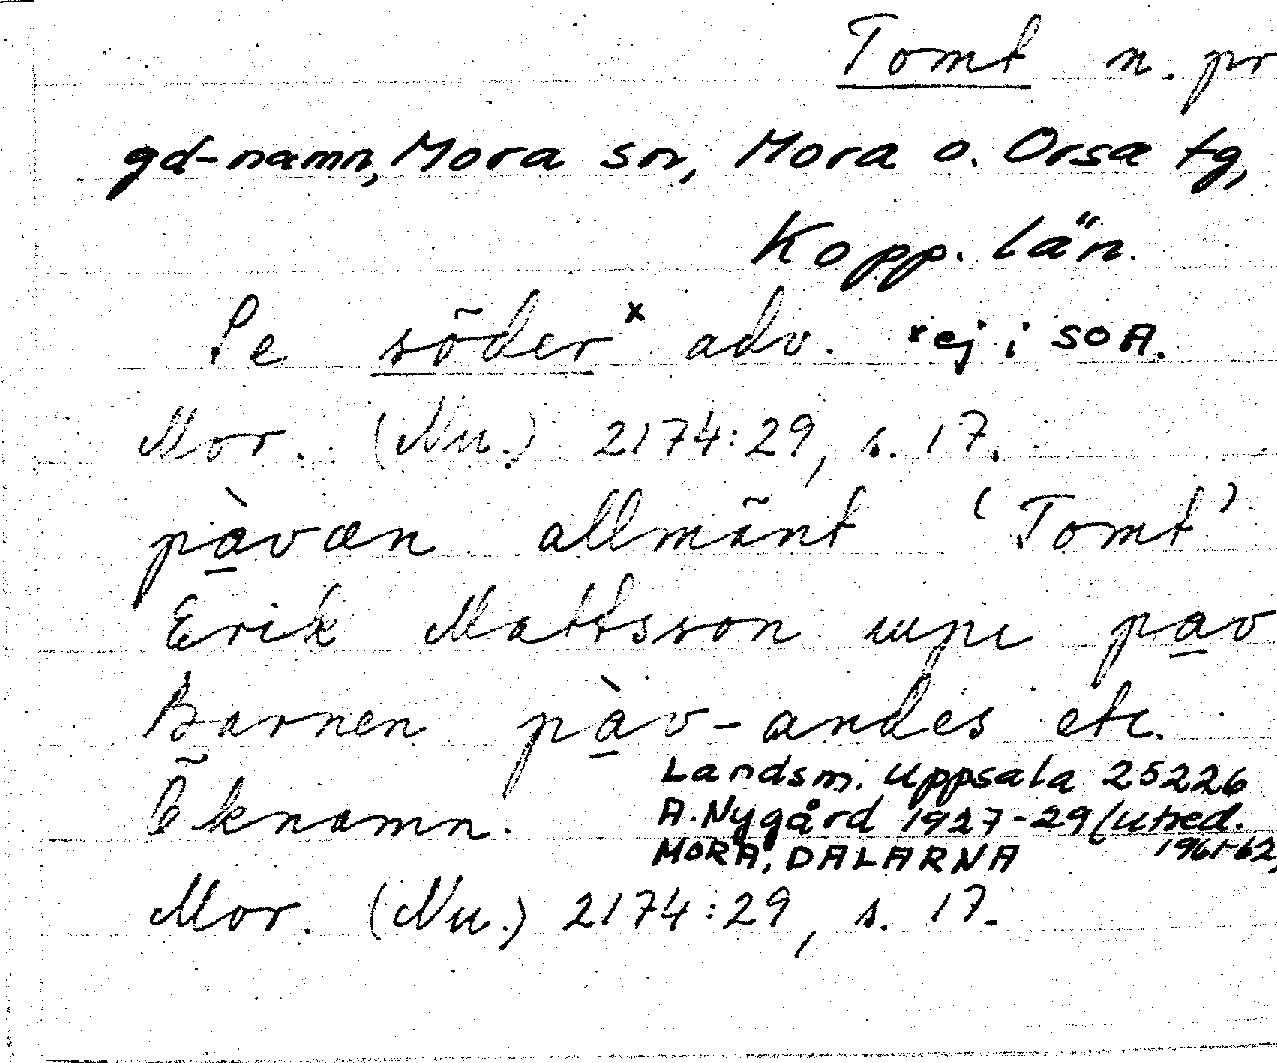 Tomt n. pr
gd-namn, Mora sn, Mora o. Orsa tg,
Kopp. län.
Se söder x adv. x ej i SOA.
Mor. (Nu.) 2174:29, s. 17.
pàvæn allmänt 'Tomt'
Erik Mattsson uppi pav
Barnen pàv-andes etc.
Öknamn.
Landsm. Uppsala 25226
A. Nygård 1927-29 (utred.
1961-62)
MORA, DALARNA
Mor. (Nu.) 2174:29, s. 17.